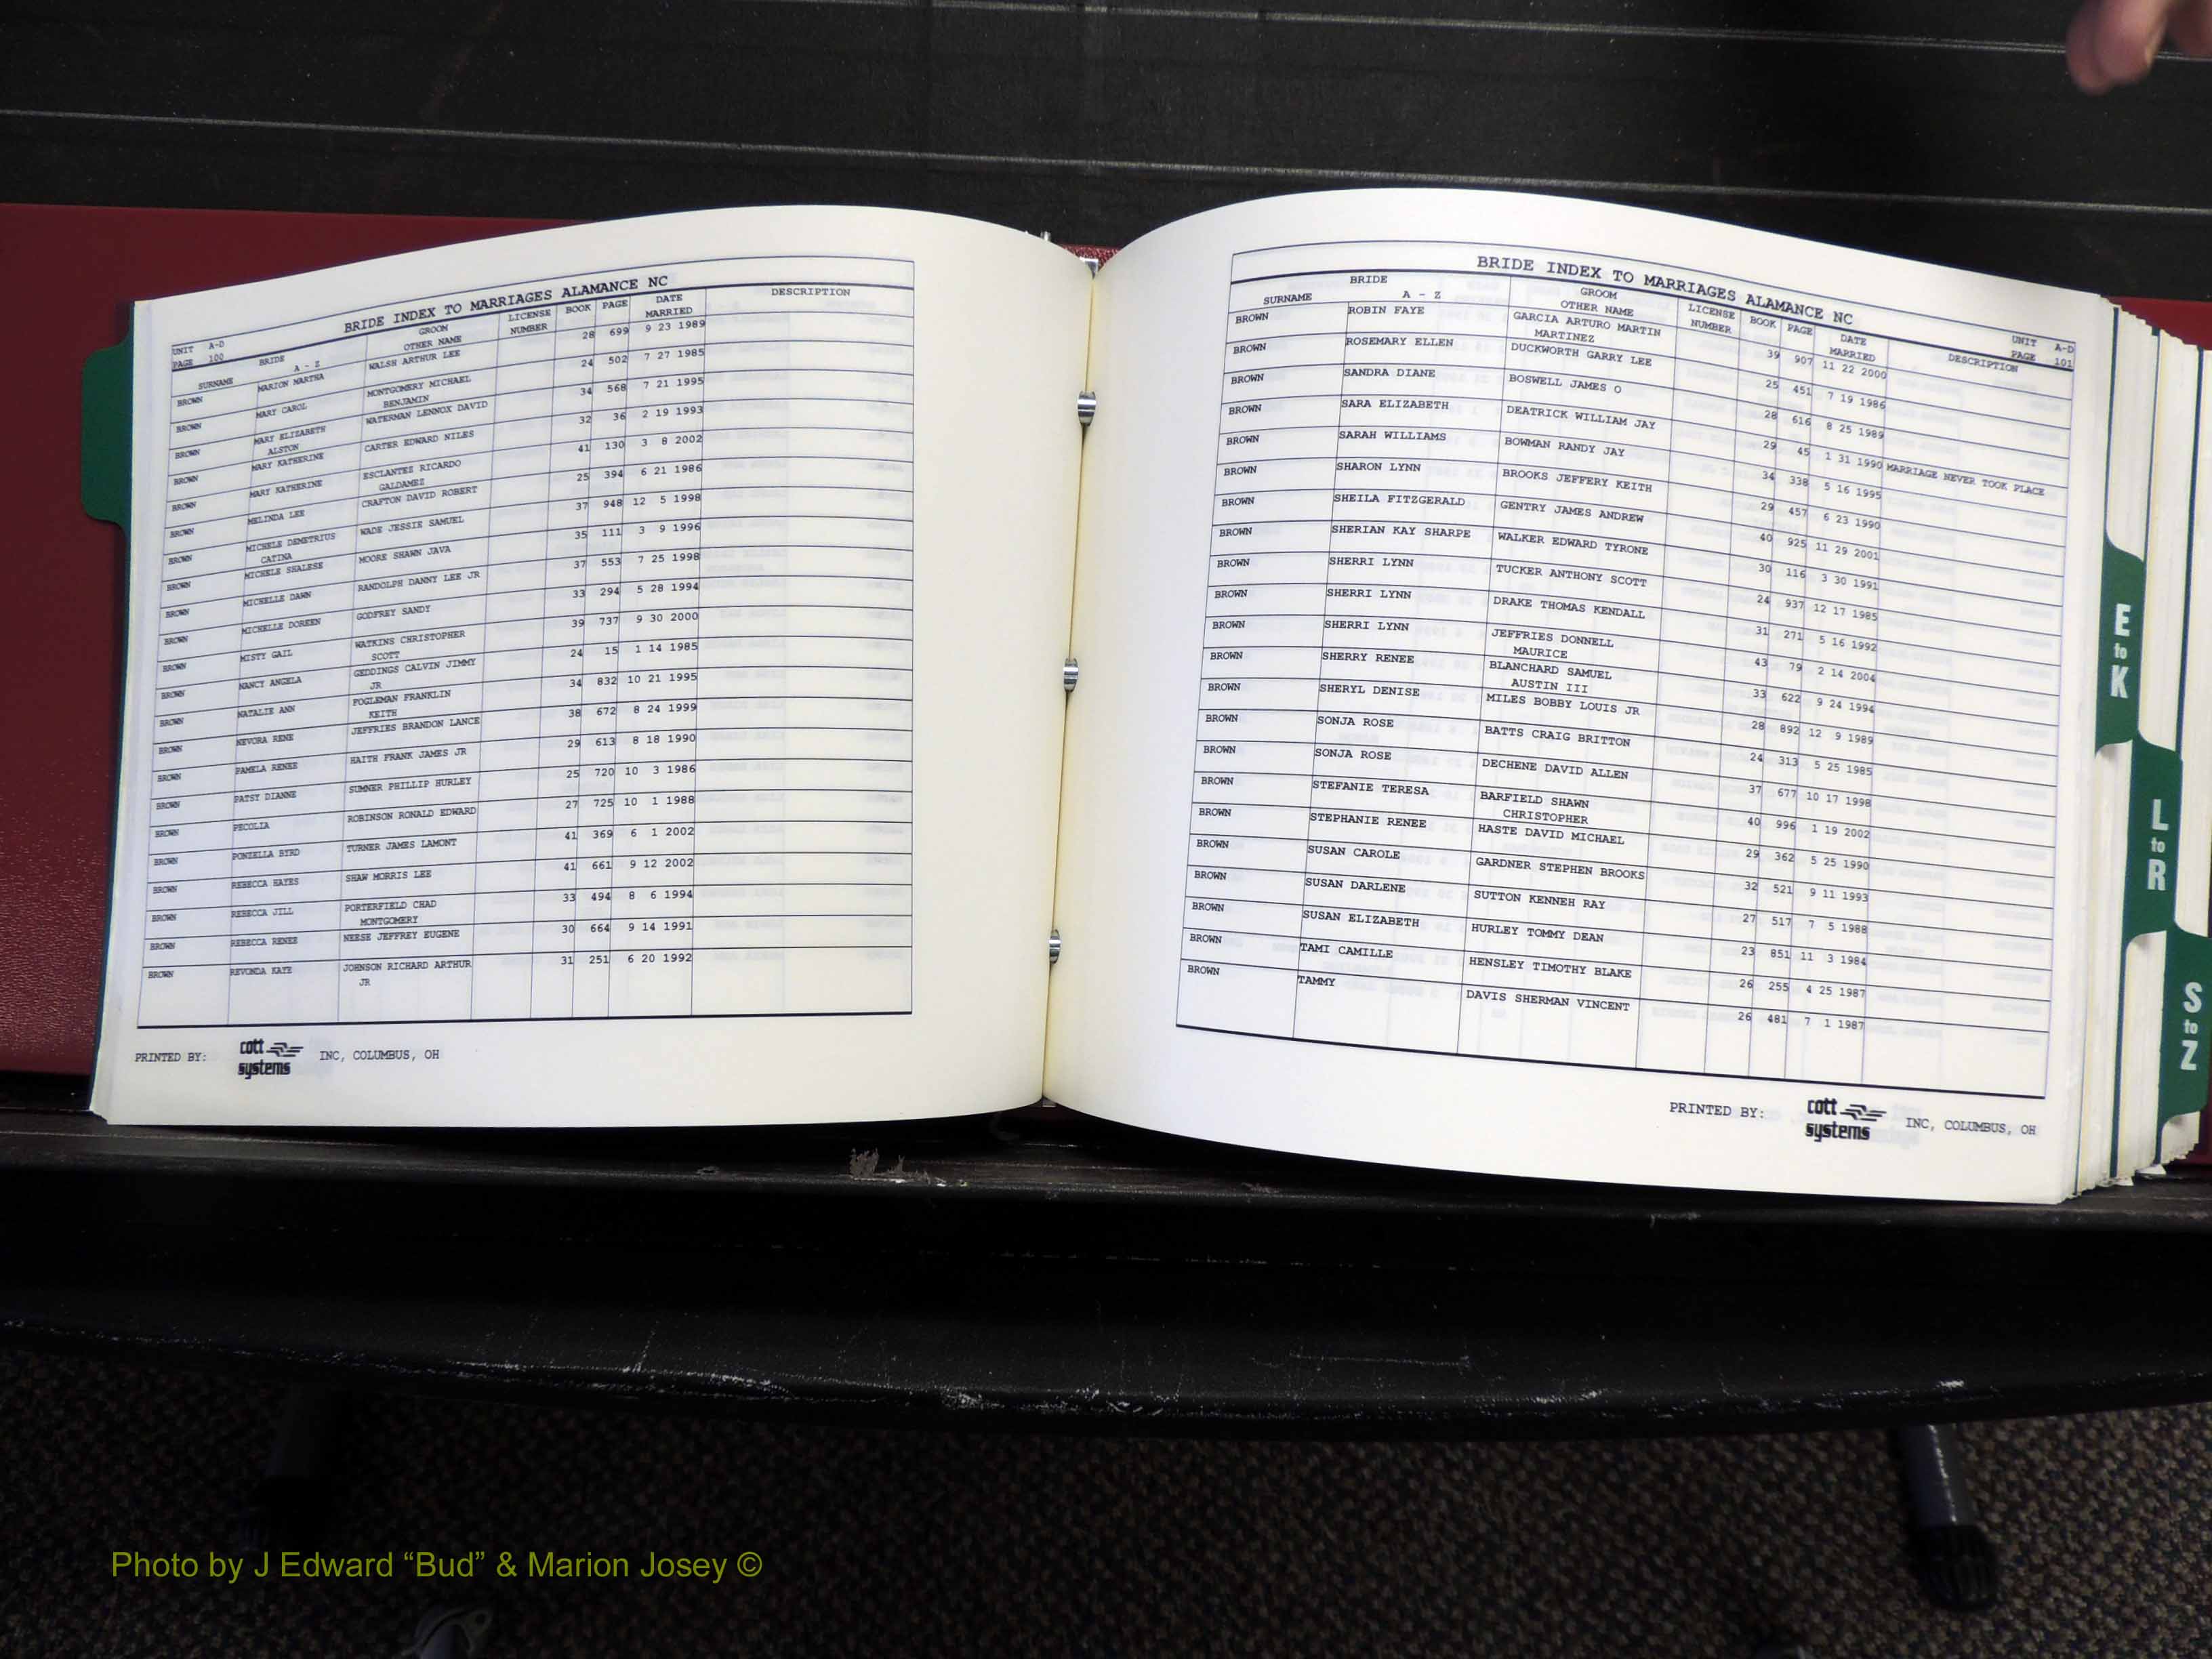 BRIDE INDEX TO MARRIAGES ALAMANCE NC
UNIT A-D
PAGE 100
SURNAME BRIDE A - Z GROOM OTHER NAME LICENSE NUMBER BOOK PAGE DATE MARRIED DESCRIPTION
BROWN MARION MARTHA WALSH ARTHUR LEE 28 699 9 23 1989
BROWN MARY CAROL MONTGOMERY MICHAEL BENJAMIN 24 502 7 27 1985
BROWN MARY ELIZABETH ALSTON WATERMAN LENNOX DAVID 34 568 7 21 1995
BROWN MARY KATHERINE CARTER EDWARD NILES 32 36 2 19 1993
BROWN MARY KATHERINE ESCLANTES RICARDO GALDAMEZ 41 130 3 8 2002
BROWN MELINDA LEE CRAFTON DAVID ROBERT 25 394 6 21 1986
BROWN MICHELE DEMETRIUS CATINA WADE JESSIE SAMUEL 37 948 12 5 1998
BROWN MICHELE SHALESE MOORE SHAWN JAVA 35 111 3 9 1996
BROWN MICHELLE DAWN RANDOLPH DANNY LEE JR 37 553 7 25 1998
BROWN MICHELLE DOREEN GODFREY SANDY 33 294 5 28 1994
BROWN MISTY GAIL WATKINS CHRISTOPHER SCOTT 39 737 9 30 2000
BROWN NANCY ANGELA GEDDINGS CALVIN JIMMY JR 24 15 1 14 1985
BROWN NATALIE ANN FOGLEMAN FRANKLIN KEITH 34 832 10 21 1995
BROWN NEVORA RENE JEFFRIES BRANDON LANCE 38 672 8 24 1999
BROWN PAMELA RENEE HAITH FRANK JAMES JR 29 613 8 18 1990
BROWN PATSY DIANNE SUMNER PHILLIP HURLEY 25 720 10 3 1986
BROWN PECOLIA ROBINSON RONALD EDWARD 27 725 10 1 1988
BROWN PONZELLA BYRD TURNER JAMES LAMONT 41 369 6 1 2002
BROWN REBECCA HAYES SHAW MORRIS LEE 41 661 9 12 2002
BROWN REBECCA JILL PORTERFIELD CHAD MONTGOMERY 33 494 8 6 1994
BROWN REBECCA RENEE NEESE JEFFREY EUGENE 30 664 9 14 1991
BROWN REVONDA KAYE JOHNSON RICHARD ARTHUR JR 31 251 6 20 1992
PRINTED BY: cott systems INC, COLUMBUS, OH
BRIDE INDEX TO MARRIAGES ALAMANCE NC
UNIT A-D
PAGE 101
SURNAME BRIDE A - Z GROOM OTHER NAME LICENSE NUMBER BOOK PAGE DATE MARRIED DESCRIPTION
BROWN ROBIN FAYE GARCIA ARTURO MARTIN MARTINEZ 39 907 11 22 2000
BROWN ROSEMARY ELLEN DUCKWORTH GARRY LEE 25 451 7 19 1986
BROWN SANDRA DIANE BOSWELL JAMES O 28 616 8 25 1989
BROWN SARA ELIZABETH DEATRICK WILLIAM JAY 29 45 1 31 1990 MARRIAGE NEVER TOOK PLACE
BROWN SARAH WILLIAMS BOWMAN RANDY JAY 34 338 5 16 1995
BROWN SHARON LYNN BROOKS JEFFERY KEITH 29 457 6 23 1990
BROWN SHEILA FITZGERALD GENTRY JAMES ANDREW 40 925 11 29 2001
BROWN SHERIAN KAY SHARPE WALKER EDWARD TYRONE 30 116 3 30 1991
BROWN SHERRI LYNN TUCKER ANTHONY SCOTT 24 937 12 17 1985
BROWN SHERRI LYNN DRAKE THOMAS KENDALL 31 271 5 16 1992
BROWN SHERRI LYNN JEFFRIES DONNELL MAURICE 43 79 2 14 2004
BROWN SHERRY RENEE BLANCHARD SAMUEL AUSTIN III 33 622 9 24 1994
BROWN SHERYL DENISE MILES BOBBY LOUIS JR 28 892 12 9 1989
BROWN SONJA ROSE BATTS CRAIG BRITTON 24 313 5 25 1985
BROWN SONJA ROSE DECHENE DAVID ALLEN 37 677 10 17 1998
BROWN STEFANIE TERESA BARFIELD SHAWN CHRISTOPHER 40 996 1 19 2002
BROWN STEPHANIE RENEE HASTE DAVID MICHAEL 29 362 5 25 1990
BROWN SUSAN CAROLE GARDNER STEPHEN BROOKS 32 521 9 11 1993
BROWN SUSAN DARLENE SUTTON KENNEH RAY 27 517 7 5 1988
BROWN SUSAN ELIZABETH HURLEY TOMMY DEAN 23 851 11 3 1984
BROWN TAMI CAMILLE HENSLEY TIMOTHY BLAKE 26 255 4 25 1987
BROWN TAMMY DAVIS SHERMAN VINCENT 26 481 7 1 1987
PRINTED BY: cott systems INC, COLUMBUS, OH
E to K
L to R
S to Z
Photo by J Edward “Bud” & Marion Josey ©